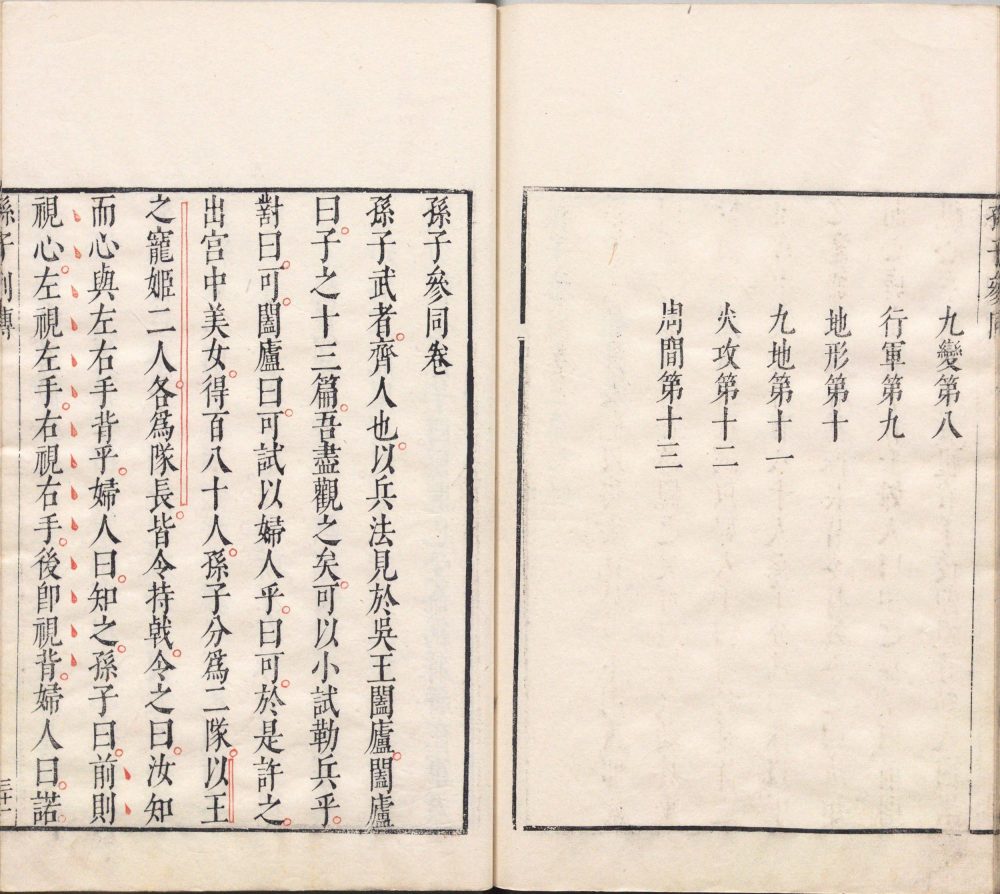 孫子參同
九變第八
行軍第九
地形第十
九地第十一
火攻第十二
用間第十三
孫子參同卷
孫子武者。齊人也。以兵法見於吳王闔廬。闔廬
曰。子之十三篇。吾盡觀之矣。可以小試勒兵乎。
對曰。可。闔廬曰。可試以婦人乎。曰。可。於是許之。
出宮中美女。得百八十人。孫子分爲二隊。以王
之寵姬二人。各爲隊長。皆令持戟。令之曰。汝知
而心與左右手背乎。婦人曰。知之。孫子曰。前則
視心。左視左手。右視右手。後卽視背。婦人曰。諾。
孫子列傳